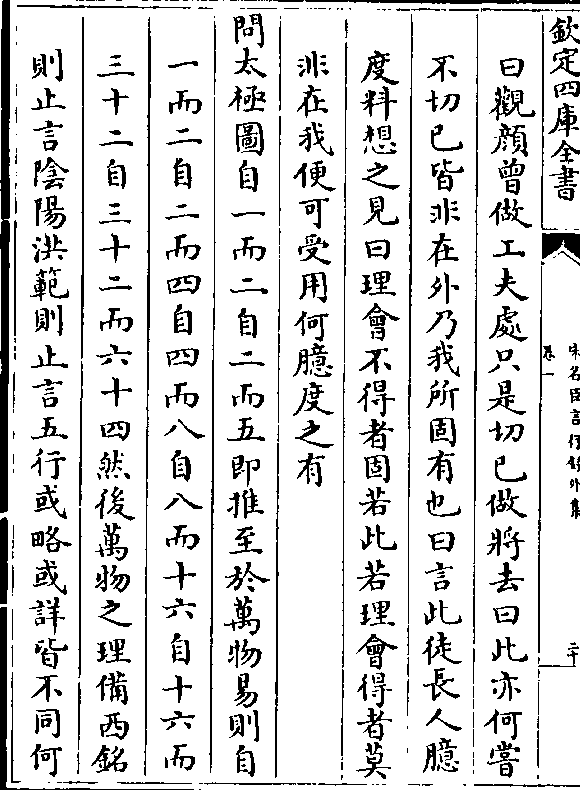 欽定四庫全書
宋名臣言行錄外集
卷一
二十
曰觀顔曽做工夫處只是切已做將去曰此亦何嘗
不切已皆非在外乃我所固有也曰言此徒長人臆
度料想之見曰理會不得者固若此若理會得者莫
非在我便可受用何臆度之有
問太極圖自一而二自二而五即推至於萬物易則自
一而二自二而四自四而八自八而十六自十六而
三十二自三十二而六十四然後萬物之理備西銘
則止言陰陽洪範則止言五行或略或詳皆不同何